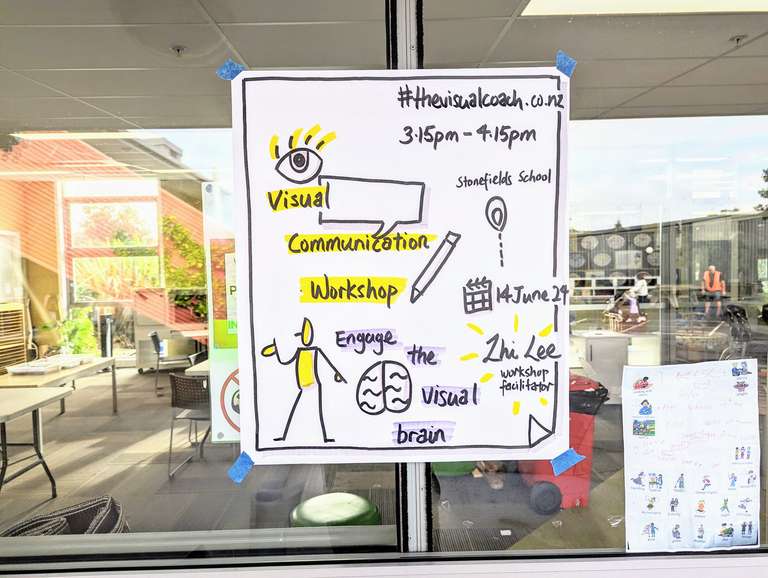 #thevisualcoach.co.nz
3.15pm - 4.15pm
Stonefields School
Visual
Communication
Workshop
14 June 24
Engage
the
Visual
brain
Zhi Lee
workshop
facilitator